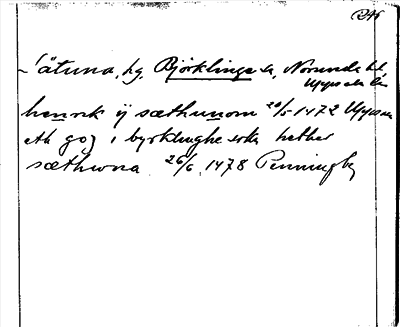 Sätuna, hg, Björklinge sn, Norunda hd,
Uppsala län
henrik ij sæthunom 20/5 1472 Uppsala
eth goz i byrklinghe sokn hether
sæthwna 26/6 1478 Penningby